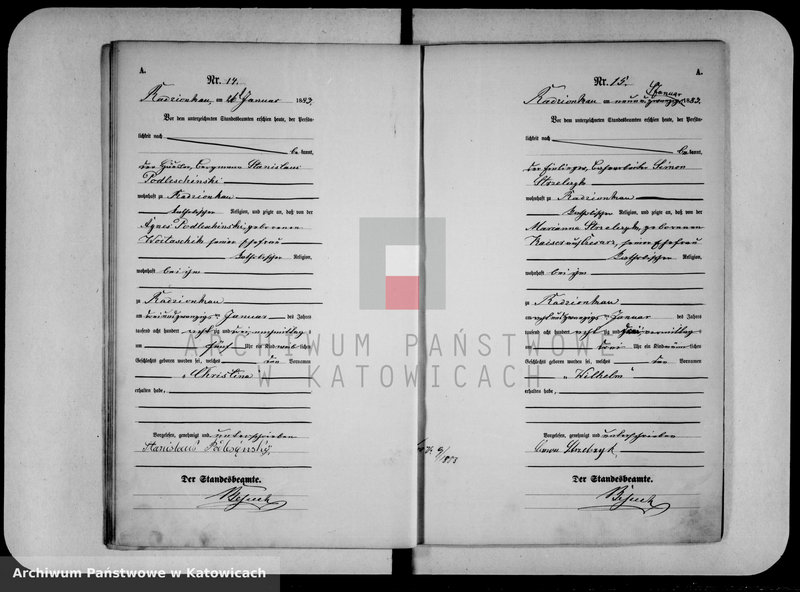 A.
Nr. 14.
Radzionkau, am Januar 1883.
Vor dem unterzeichneten Standesbeamten erschien heute, der Persön-
lichkeit nach
be kannt,
der Bergmann Stanislaus
Podleschinski
wohnhaft zu Radzionkau
katholischer Religion, und zeigte an, daß von der
Agnes geborenen
Woitaschik seiner Ehefrau
katholischer Religion,
wohnhaft bei ihm
zu Radzionkau
am dreiundzwanzigsten Januar des Jahres
tausend acht hundert achtzig und drei nachmittag s
um fünf Uhr ein Kind weib liches
Geschlechts geboren worden sei, welches den Vornamen
„Christina“
erhalten habe,
Vorgelesen, genehmigt und unterschrieben
Stanislaus
Der Standesbeamte.
A.
Nr. 15.
Januar
Radzionkau am 1883.
Vor dem unterzeichneten Standesbeamten erschien heute, der Persön-
lichkeit nach
be kannt,
der Simon
Strzelczyk
wohnhaft zu Radzionkau
katholischer Religion, und zeigte an, daß von der
Marianna Strzelczyk, geborenen
Kaiser seiner Ehefrau
katholischer Religion,
wohnhaft bei ihm
zu Radzionkau
am Januar des Jahres
tausend acht hundert achtzig und drei vormittag s
um drei Uhr ein Kind männ liches
Geschlechts geboren worden sei, welches den Vornamen
„Wilhelm“
erhalten habe,
Vorgelesen, genehmigt und unterschrieben
Simon
Der Standesbeamte.
ARCHIWUM PAŃSTWOWE
W KATOWICACH
Archiwum Państwowe w Katowicach